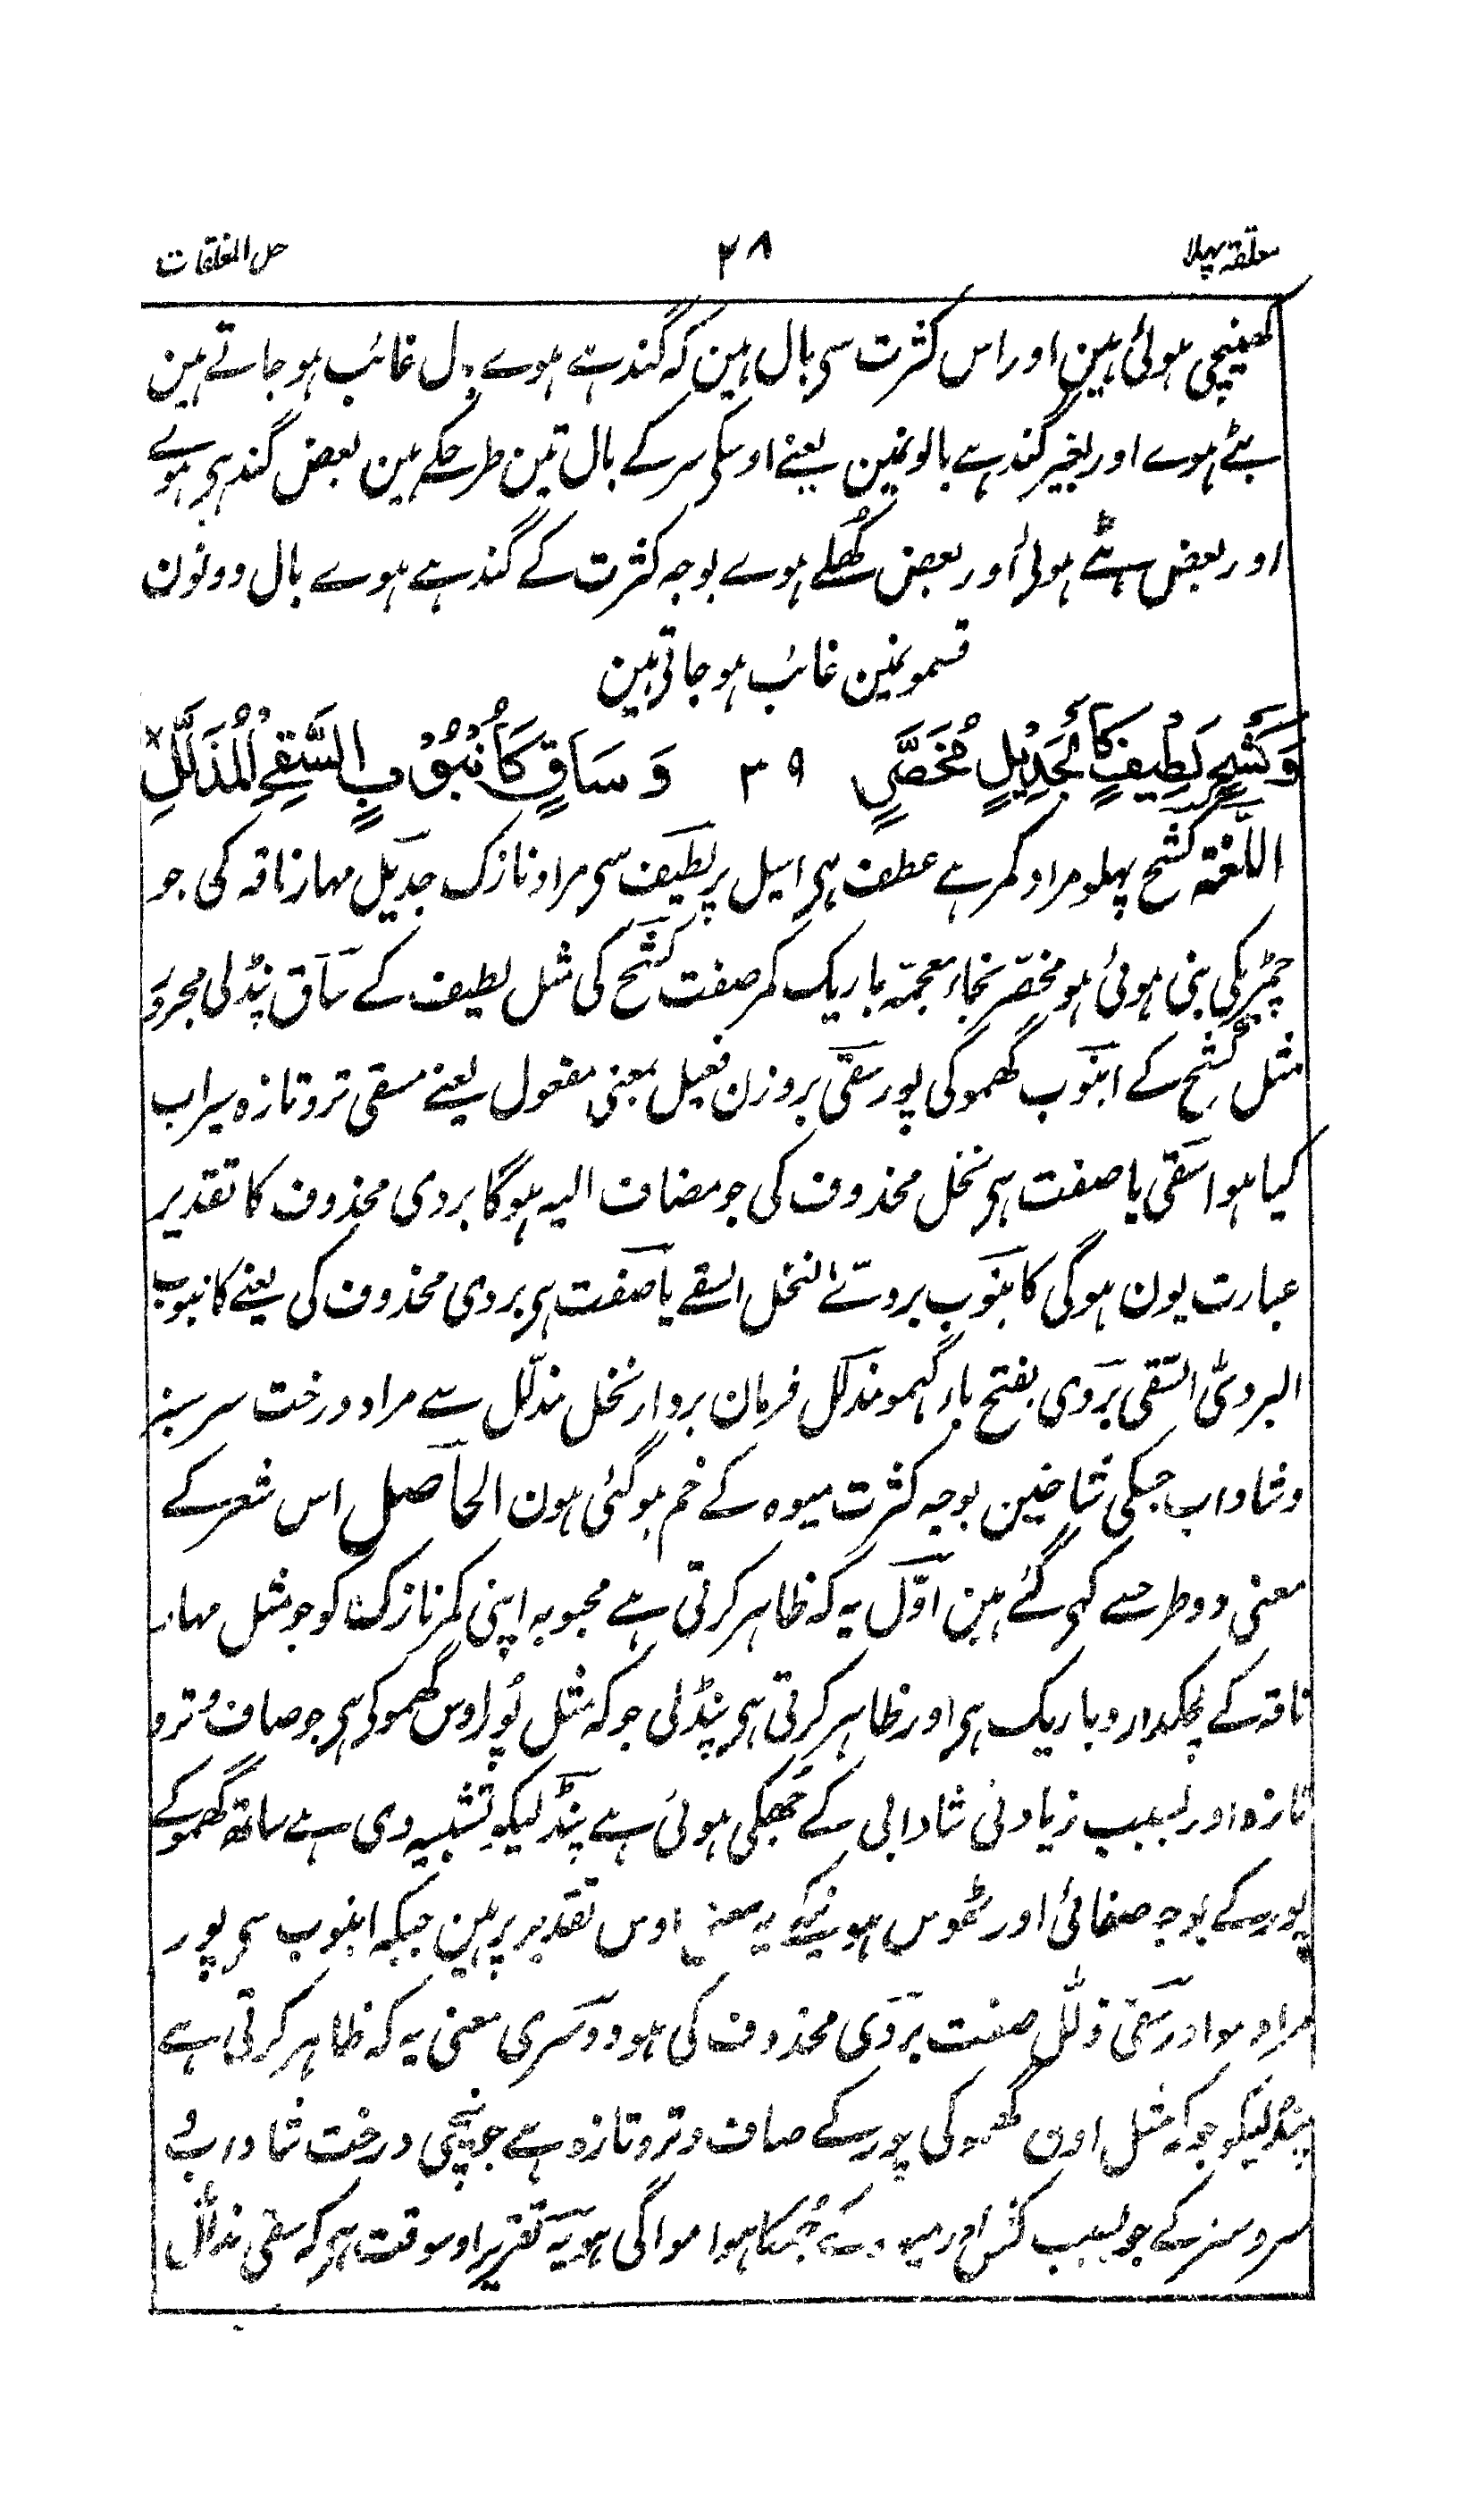 معلقہ پہلا ۲۸ حل المغلقات
کھینچی ہوئی ہین اور اس کثرت سی بال ہین کہ گندہے ہوے دل غائب ہو جاتے ہین
بٹے ہوے اور بغیر گندہے بالونمین یعنے اوسکی سر کے بال تین طرحکے ہین بعض گندہی ہوے
اور بعض بٹے ہوئی اور بعض کُھلے ہوے بوجہ کثرت کے گندہے ہوے بال دونون
قسمونمین غائب ہو جاتی ہین
وَكَشْحٍ لَطِيْفٍ كَالْجَدِيْلِ مُخَصَّرٍ ۳۹ وَسَاقٍ كَأُنْبُوْبِ السَّقِيِّ الْمُذَلَّلِ
اللّغۃ کشح پہلو مراد کمر ہے عطف ہی اسیل پر لطیف سی مراد نازک جدیل مہار ناقہ کی جو
چمڑیکی بنی ہوئی ہو مخصّر بخاء معجمہ باریک کمر صفت کشح کی مثل لطیف کے ساق پنڈلی مجرور
مثل کشح کے انبوب گھموکی پور سقی بر وزن فعیل بمعنی مفعول یعنے مسقی تر و تازہ سیراب
کیا ہوا سقی یا صفت ہی نخل محذوف کی جو مضاف الیہ ہوگا بردی محذوف کا تقدیر
عبارت یون ہوگی کانبوب بردیّ النخل السقے یا صفت ہی بردی محذوف کی یعنے کانبوب
البردیّ السّقی بردی بفتح باء گہمو مذلل فرمان بردار نخل مذلّل سے مراد درخت سرسبز
و شاداب جسکی شاخین بوجہ کثرت میوہ کے خم ہوگئی ہون الحاصل اس شعر کے
معنی دو طرحسے کہی گئے ہین اوّل یہ کہ ظاہر کرتی ہے محبوبہ اپنی کمر نازک کو جو مثل مہار
ناقہ کے لچکدار و باریک ہی اور ظاہر کرتی ہی پنڈلی جو کہ مثل پُور اوس گھموکی ہی جو صاف و ترو
تازہ اور بسبب زیادتی شادابی کے جُھکی ہوئی ہے پنڈلیکو تشبیہ دی ہے ساتھ گھموکے
پور کے بوجہ صفائی اور ٹھوس ہونیکے یہ معنی اوس تقدیر پر ہین جبکہ انبوب سی پور
مراد ہو اور سقی ذلّل صفت بردی محذوف کی ہو دوسری معنی یہ کہ ظاہر کرتی ہے
پنڈلیکو جو کہ مثل اون گھموکی پور کے صاف و تر و تازہ ہے جو نیچی درخت شاداب و
سروسبز کے جو بسبب میوہ کے جُھکا ہوا ہو اگی ہو یہ تقریر اوسوقت ہی کہ سقی مذلل